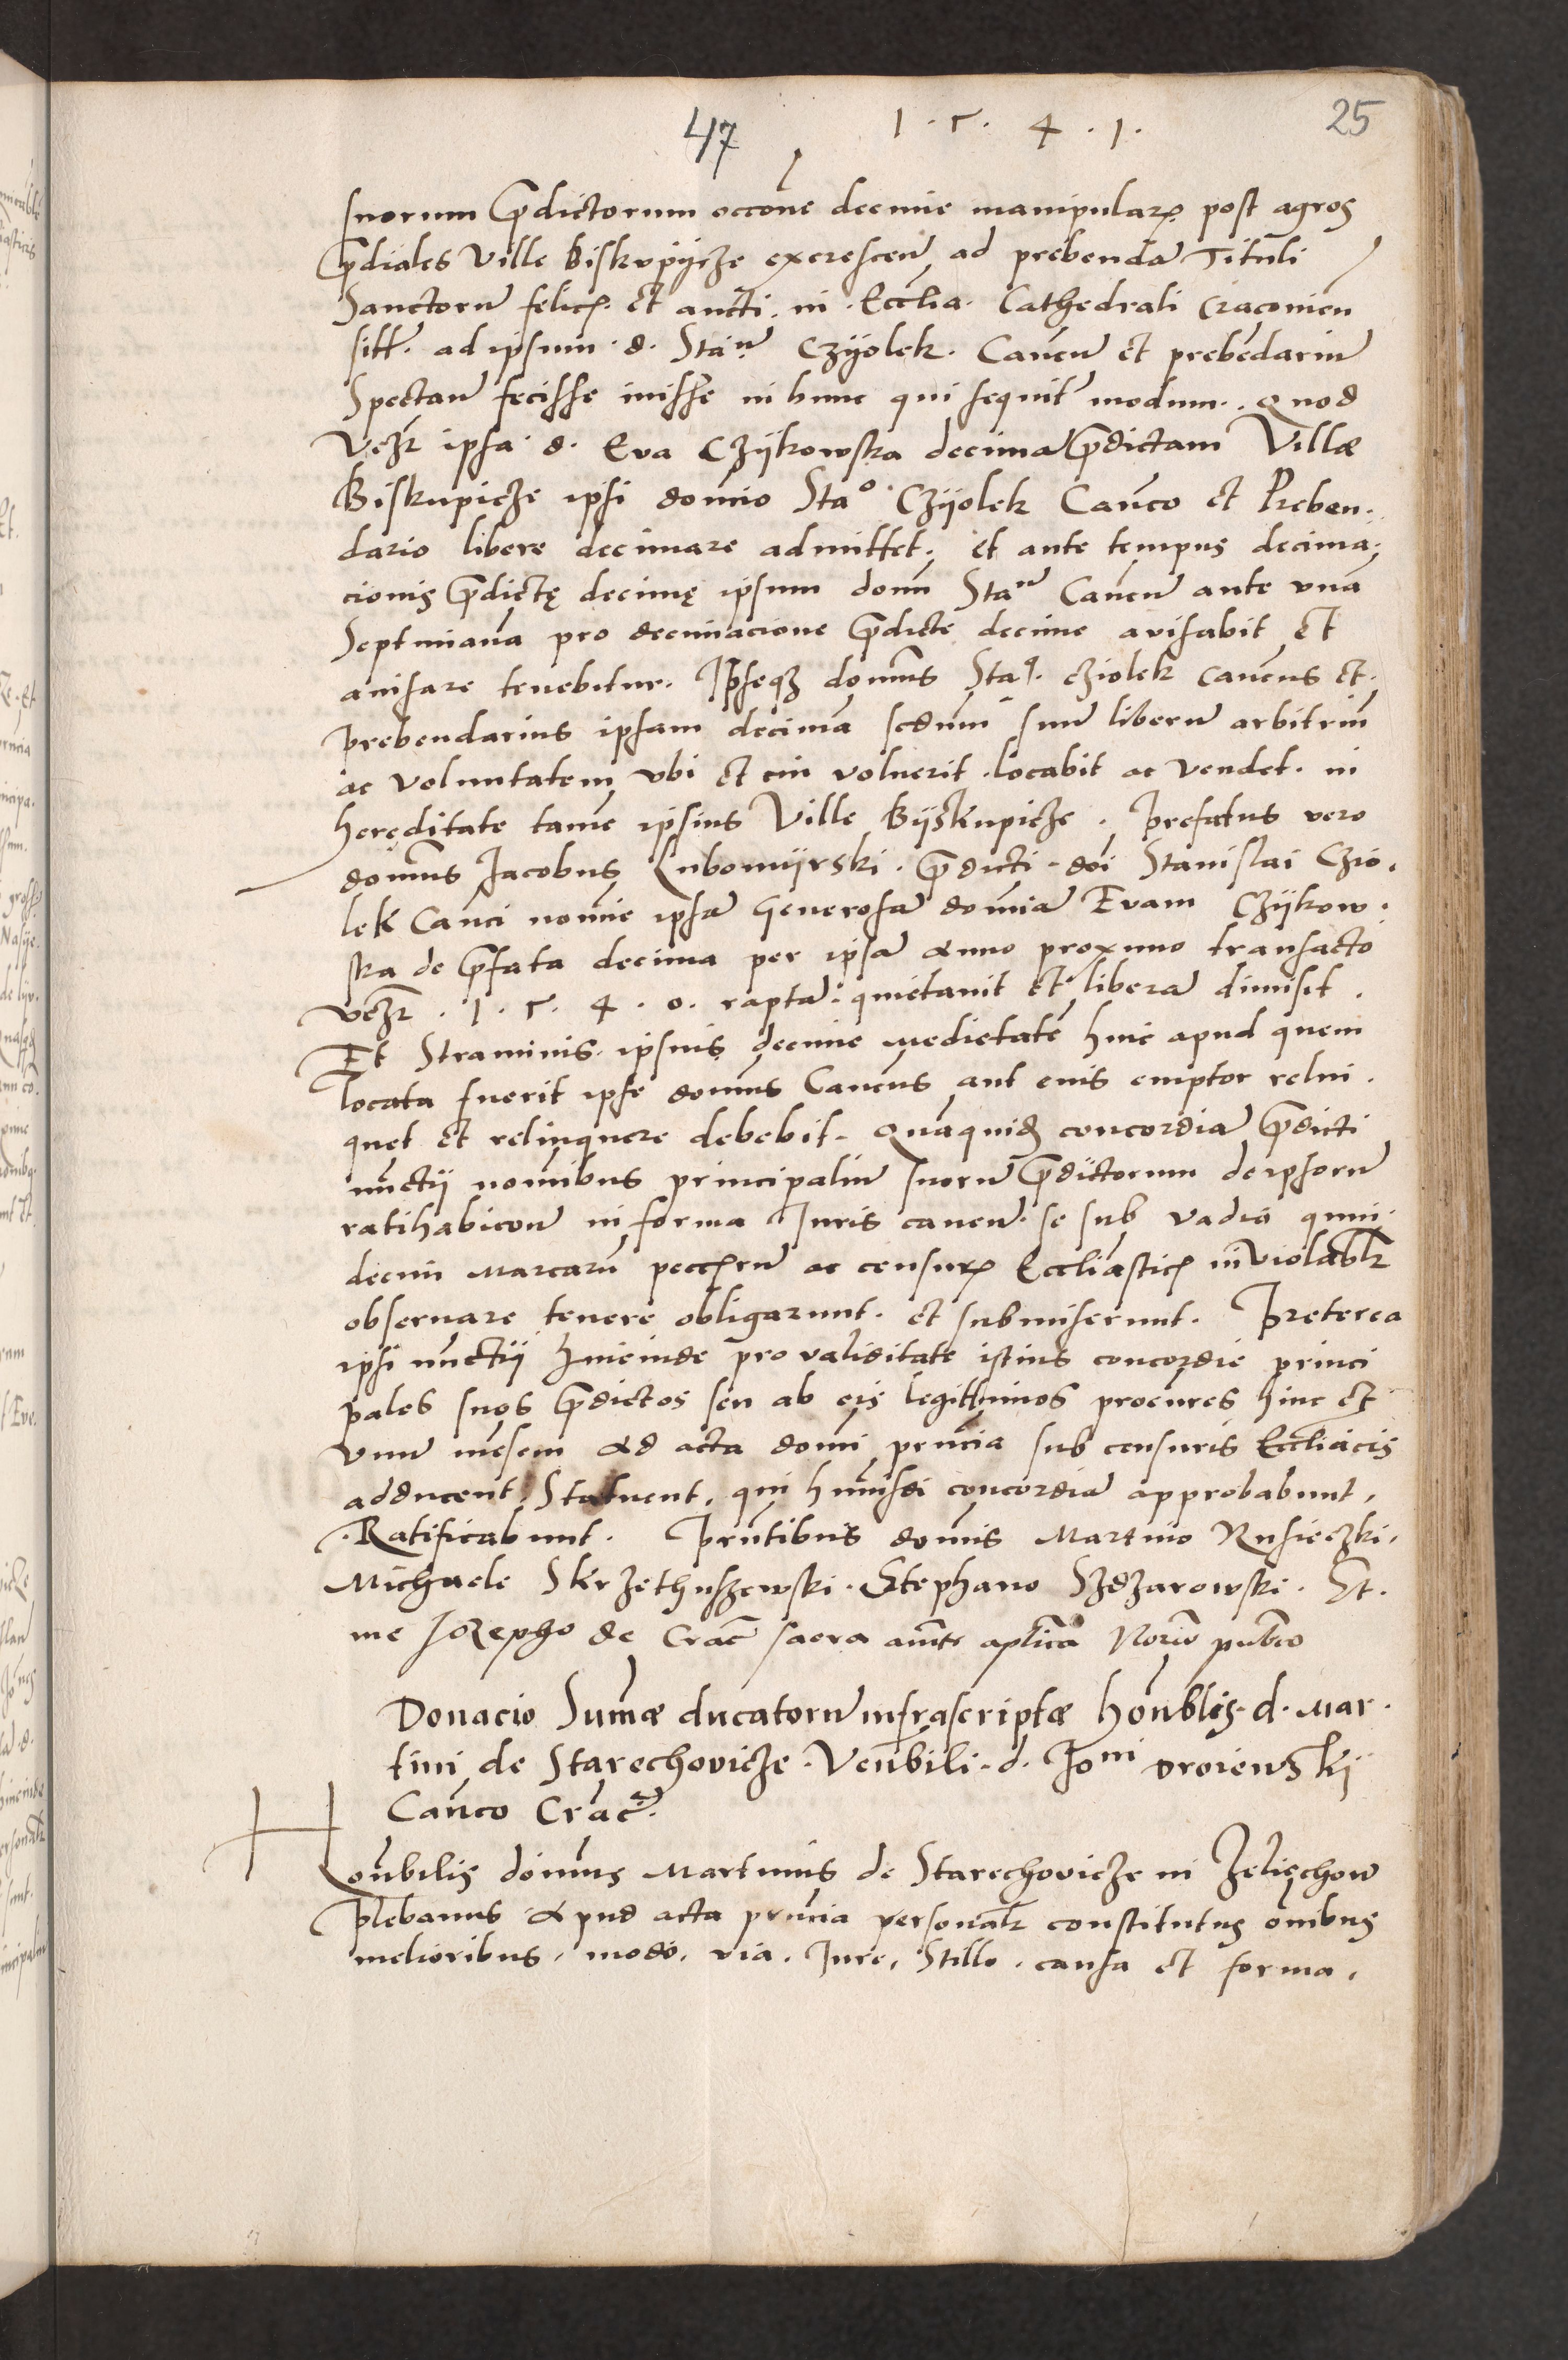 47 1.5.4.1. 25
suorum p̄dictorum occōne decime manipular̄ post agros
p̄diales Ville Biskupijcze excrescen̄ ad prebendā Tituli
Sanctorū felic̄ et aucti in Eccl̄ia Cathedrali Cracovien̄
sitt̄. ad ipsum d. Staūm Czijolek. Canēcū et prebēdariū
Spectan̄ fecisse inisse in hunc qui sequit̄ modum. Quod
Vezr̄ ipsa d. Eva Czijkowska decimā p̄dictam Villæ
Biskupicze ipsi domīo Stao Czijolek Cancō et Preben-
dario libere decimare admittet. et ante tempus decima-
cionis p̄dictę decimę ipsum domū Staum Canēcū ante vnā
Septimanā pro decimacione p̄dicte decime avisabit et
auisare tenebitur. Ipseqȝ domūs Staus. Cziolek canēcus et
prebendarius ipsam decimā scdūm suū liberū arbitriū
ac voluntatem vbi et cui voluerit locabit ac vendet. in
hereditate tamē ipsius Ville Bijskupicze. Prefatus vero
domūs Jacobus Lubomijrski. p̄dicti doī Stanislai Czio-
lek Cancī nomīe ipsā Generosā domīā Evam Czijkow-
ska de p̄fata decima per ipsā Anno proximo transacto
vezr̄. 1.5.4.0. raptā. quietauit et liberā dimisit.
Et Straminis ipsius decime medietatē huic apud quem
locata fuerit ipse domūs Canēcus aut eius emptor relin-
quet et relinquere debebit. Quaquidȝ concordiā p̄dicti
nūctij nomīibus principaliū suorū p̄dictorum de ipsorū
ratihabicōe in forma Iuris cauen̄. se sub vadio quin-
decim Marcarū pecc̄ēm ac censur̄ Eccliāstic̄ inviolablr̄
obseruare tenere obligarunt. et submiserunt. Preterea
ipsi nūctij Hincinde pro validitate istius concordie princi
pales suos p̄dictos seu ab eis legittimos procūres hinc et
vnū mēsem Ad acta domī prn̄cia sub censuris Eccliācis
adducent, Statuent, qui hmōi concordiā approbabunt,
Ratificabunt. Prn̄tibus domīs Martino Rusieczki,
Michaele Skrzethuszewski. Stephano Szdzarowski. Et.
me Jozepho de Crac̄ sacra autē aplicā Norīo pubco
Donacio Sumæ ducatorū infrascriptæ honblis. d. Mar-
tini de Starechovicze. Venbili. d. Joni vroiewskij
Cancō Crac̄.
Honbilis domūs Martinus de Starechovicze in Zelięchow
Plebanus Apud acta prn̄cia personalr̄ constitutus oīnibus
melioribus, modo, via, Iure, Stillo, causa et forma,